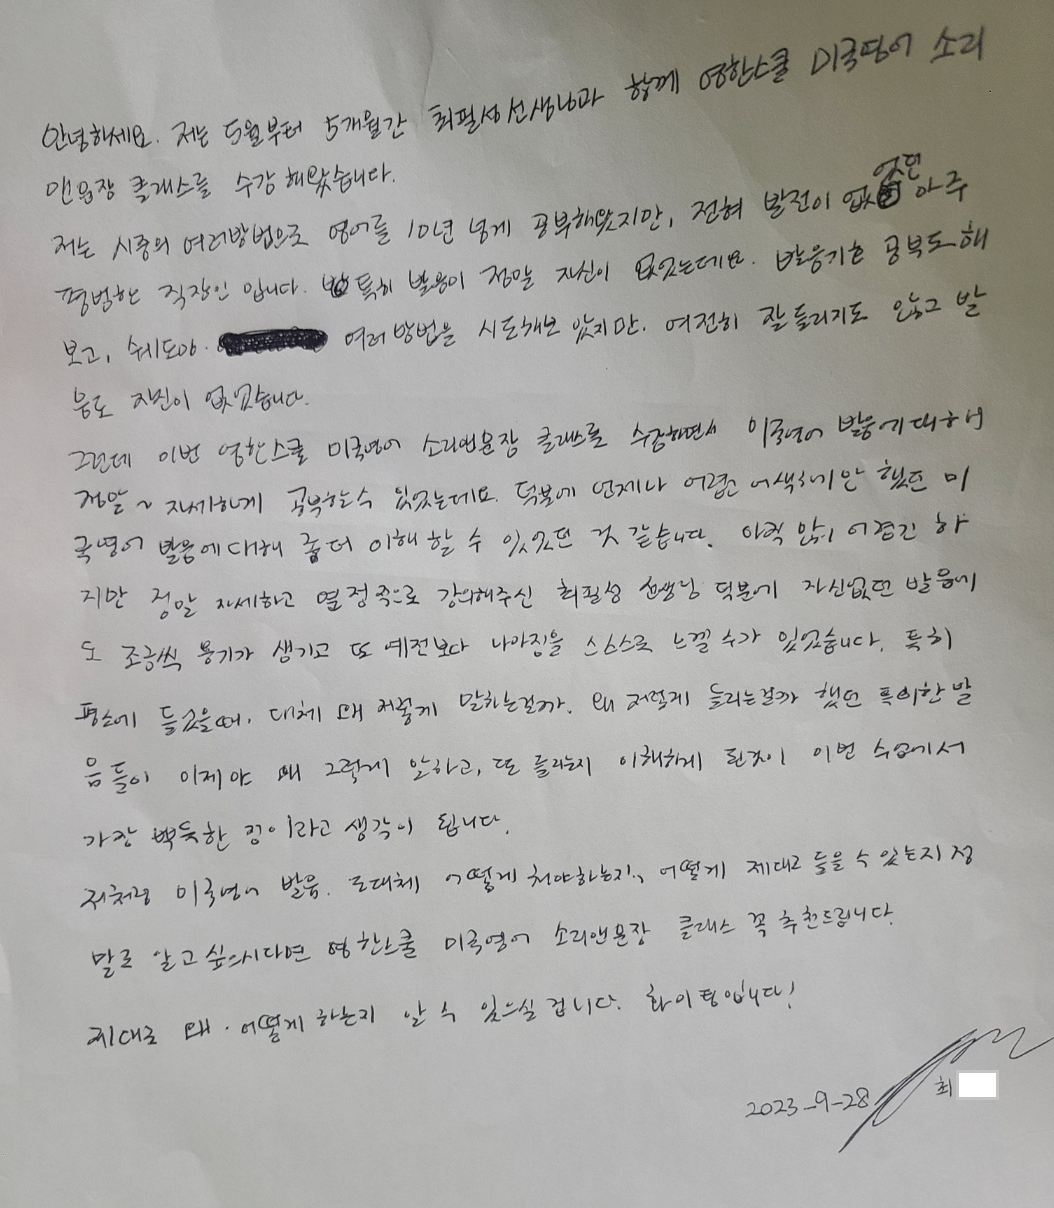 안녕하세요. 저는 5월부터 5개월간 최필성선생님과 함께 영한스쿨 미국영어 소리
앤문장 클래스를 수강 해왔습니다.
저는 시중의 여러방법으로 영어를 10년 넘게 공부해왔지만, 전혀 발전이 없었던 아주
평범한 직장인 입니다. 특히 발음이 정말 자신이 없었는데요. 발음기호 공부도 해
보고, 쉐도잉. 여러 방법을 시도해보 았지만. 여전히 잘 들리지도 않고 발
음도 자신이 없었습니다.
그런데 이번 영한스쿨 미국영어 소리앤문장 클래스를 수강하면서 미국영어 발음에 대해서
정말~ 자세하게 공부할수 있었는데요. 덕분에 언제나 어렵고 어색하기만 했던 미
국영어 발음에 대해 좀더 이해 할 수 있었던 것 같습니다. 아직 많이 어렵긴 하
지만 정말 자세하고 열정적으로 강의해주신 최필성 선생님 덕분에 자신없던 발음에
도 조금씩 용기가 생기고 또 예전보다 나아짐을 스스로 느낄 수가 있었습니다. 특히
평소에 들었을때, 대체 왜 저렇게 말하는걸까. 왜 저렇게 들리는걸까 했던 특이한 발
음들이 이제야 왜 그렇게 말하고, 또 들리는지 이해하게 된것이 이번 수업에서
가장 뿌듯한 점이라고 생각이 됩니다.
저처럼 미국영어 발음. 도대체 어떻게 해야하는지, 어떻게 제대로 들을 수 있는지 정
말로 알고 싶으시다면 영한스쿨 미국영어 소리앤문장 클래스 꼭 추천드립니다.
제대로 왜. 어떻게 하는지 알 수 있으실 겁니다. 화이팅입니다!
2023-9-28 최